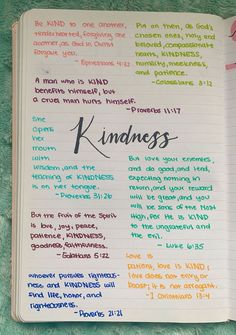 Be KIND to one another,
tenderhearted, forgiving one
another, as God in Christ
forgave you.
- Ephesians 4:32
Put on then, as God's
chosen ones, holy and
beloved, compassionate
hearts, KINDNESS,
humility, meekness,
and patience.
- Colossians 3:12
A man who is KIND
benefits himself, but
a cruel man hurts himself.
- Proverbs 11:17
She
opens
her
mouth
with
wisdom, and the
teaching of KINDNESS
is on her tongue.
- Proverbs 31:26
Kindness
But love your enemies,
and do good, and lend,
expecting nothing in
return, and your reward
will be great, and you
will be sons of the Most
High, for He is KIND
to the ungrateful and
the evil.
- Luke 6:35
But the fruit of the Spirit
is love, joy, peace,
patience, KINDNESS,
goodness, faithfulness.
- Galatians 5:22
Love is
patient, love is KIND;
love does not envy or
boast; it is not arrogant.
- 1 Corinthians 13:4
Whoever pursues righteous-
ness and KINDNESS will
find life, honor, and
righteousness.
- Proverbs 21:21